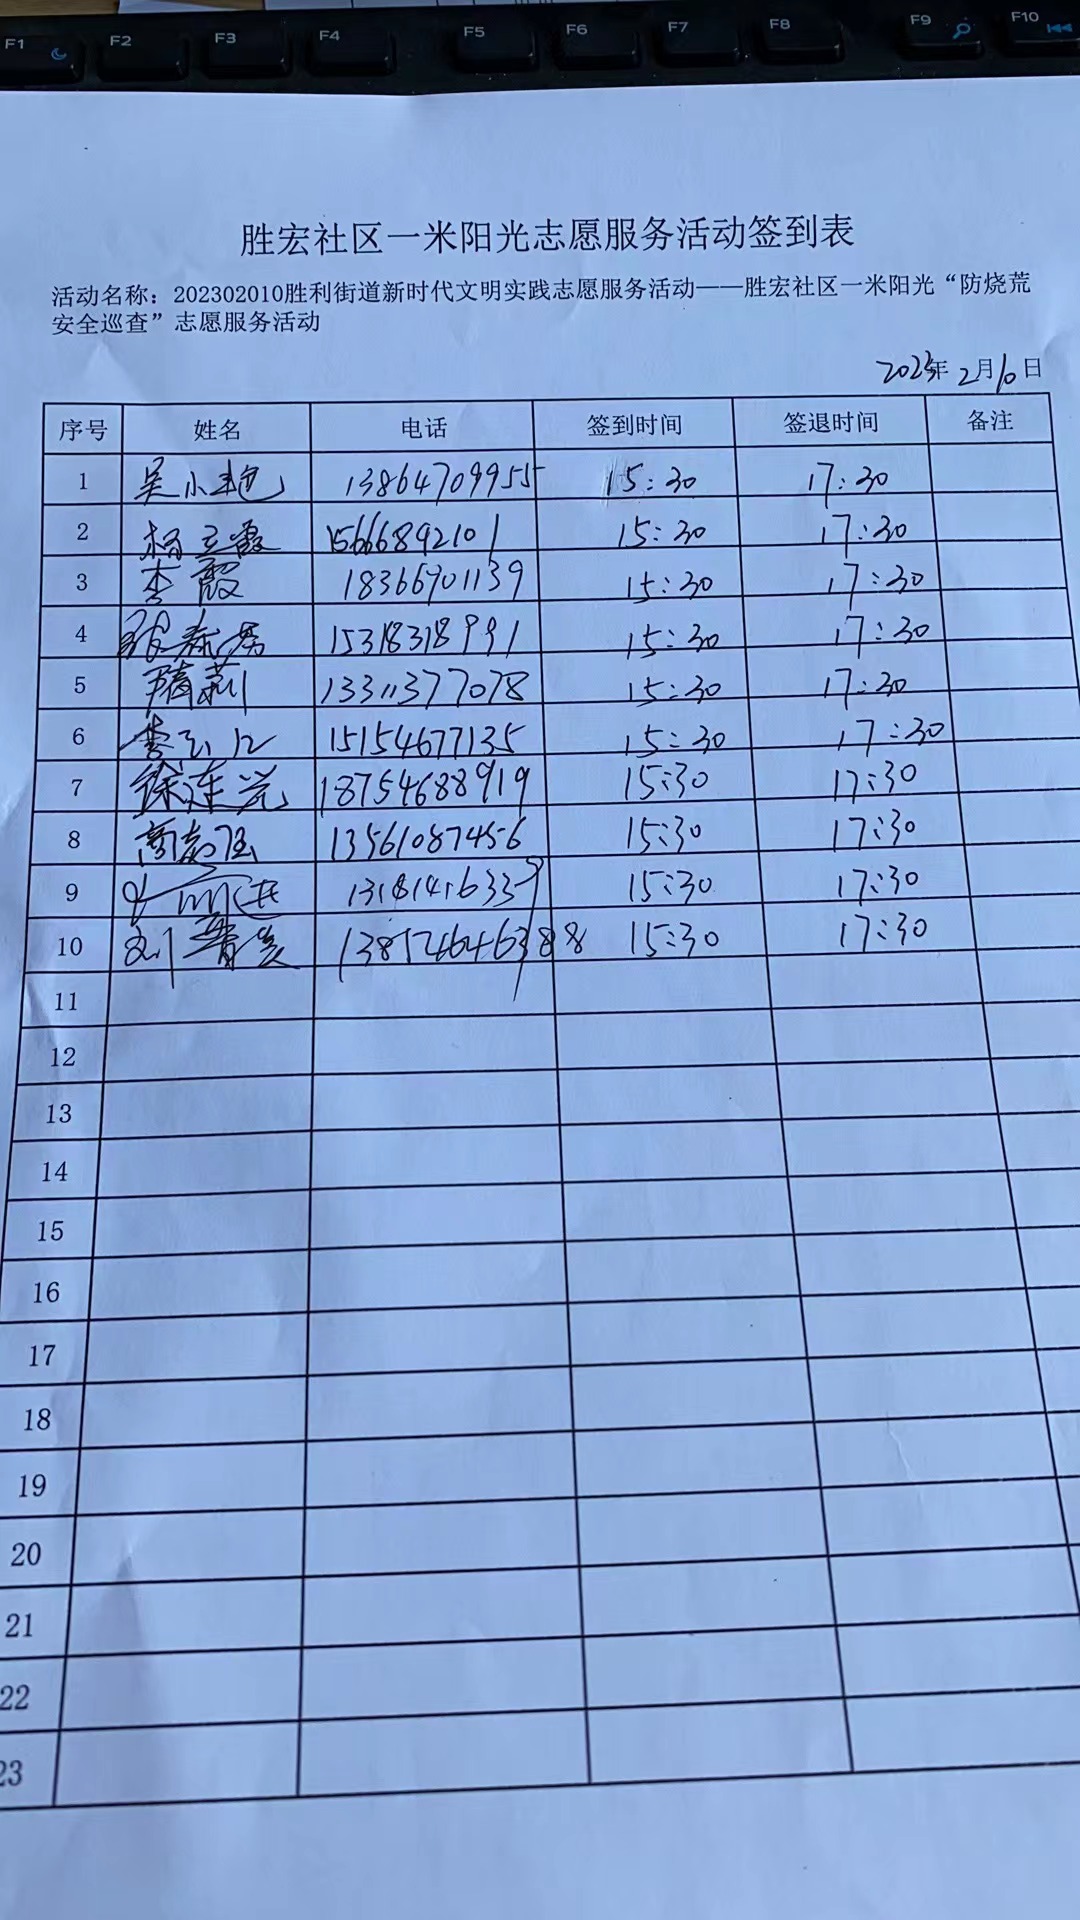 F1 F2 F3 F4 F5 F6 F7 F8 F9 F10
胜宏社区一米阳光志愿服务活动签到表
活动名称：202302010胜利街道新时代文明实践志愿服务活动——胜宏社区一米阳光“防烧荒
安全巡查”志愿服务活动
2023年 2月10日
序号 姓名 电话 签到时间 签退时间 备注
1 吴小艳 13864709955 15:30 17:30
2 杨立霞 15666892101 15:30 17:30
3 李霞 18366901139 15:30 17:30
4 15318318991 15:30 17:30
5 13311377078 15:30 17:30
6 15154677135 15:30 17:30
7 徐连光 18754688919 15:30 17:30
8 13561087456 15:30 17:30
9 15:30 17:30
10 15:30 17:30
11
12
13
14
15
16
17
18
19
20
21
22
23